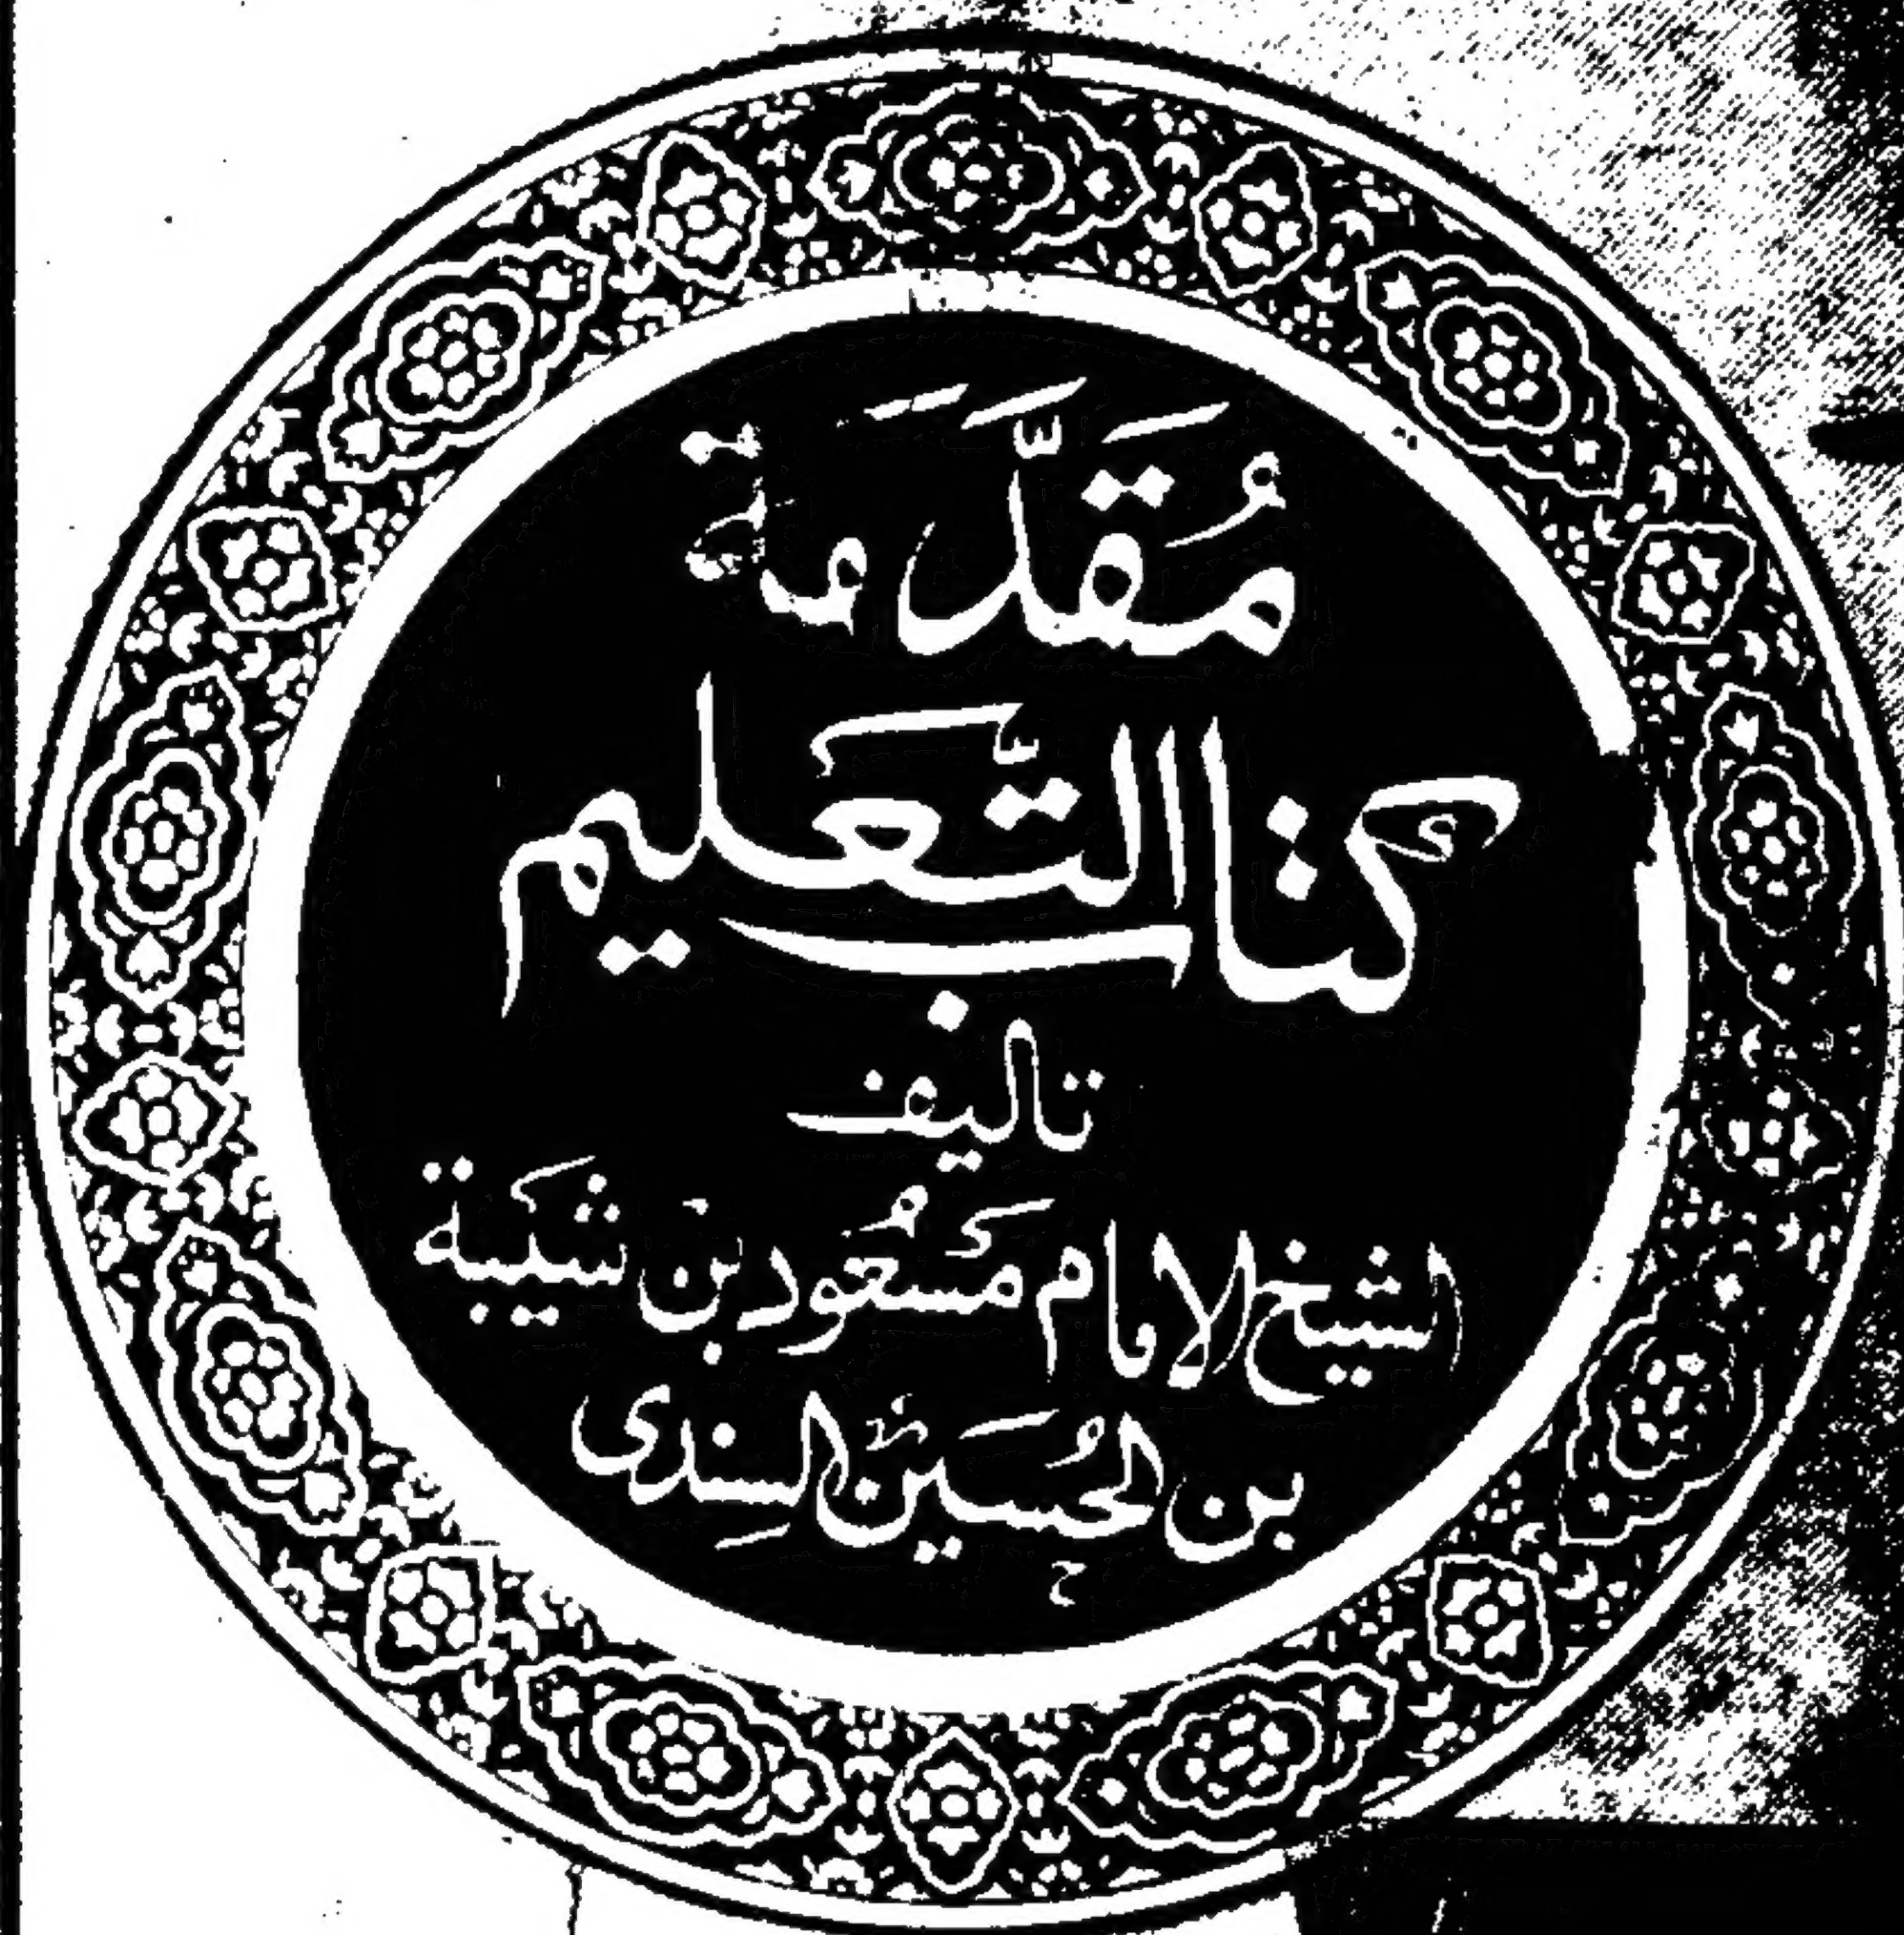 مُقَدَّمَة
كتاب التَّعْليم
تاليف
الشيخ الامام مَسْعُود بن شَيْبة
بن الحُسَين السِندى